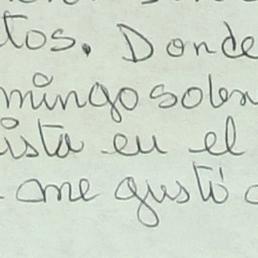 tos. Donde
mingo solem
ista eu el
me gustó